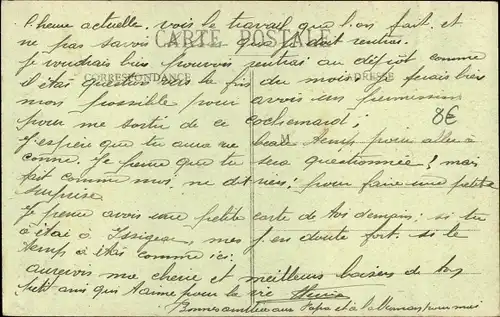 l'heure actuelle, vois le travail que l'on fait et
ne pas savoir quand je doit rentrer.
CARTE POSTALE
je voudrais bien pouvoir rentrer au dépot comme
il était question vers la fin du mois, je ferais bien
CORRESPONDANCE
ADRESSE
mon possible pour avoir un permission
8€
pour me sortir de ce cochemard;
J'espère que tu aura beau temps pour aller a
M
Je pense que tu sera questionnée! mais
fait comme moi, ne dit rien! pour faire une petite
surprise
Je pense avoir une petite carte de toi demain; si tu
a étai à Issigeac, mes j'en doute fort. si le
temps a étai comme ici.
aurevoir me cherie et meilleurs baisers de ton
petit ami qui t'aime pour la vie
Bonnes amitiée aux Papa et a la Maman pour moi